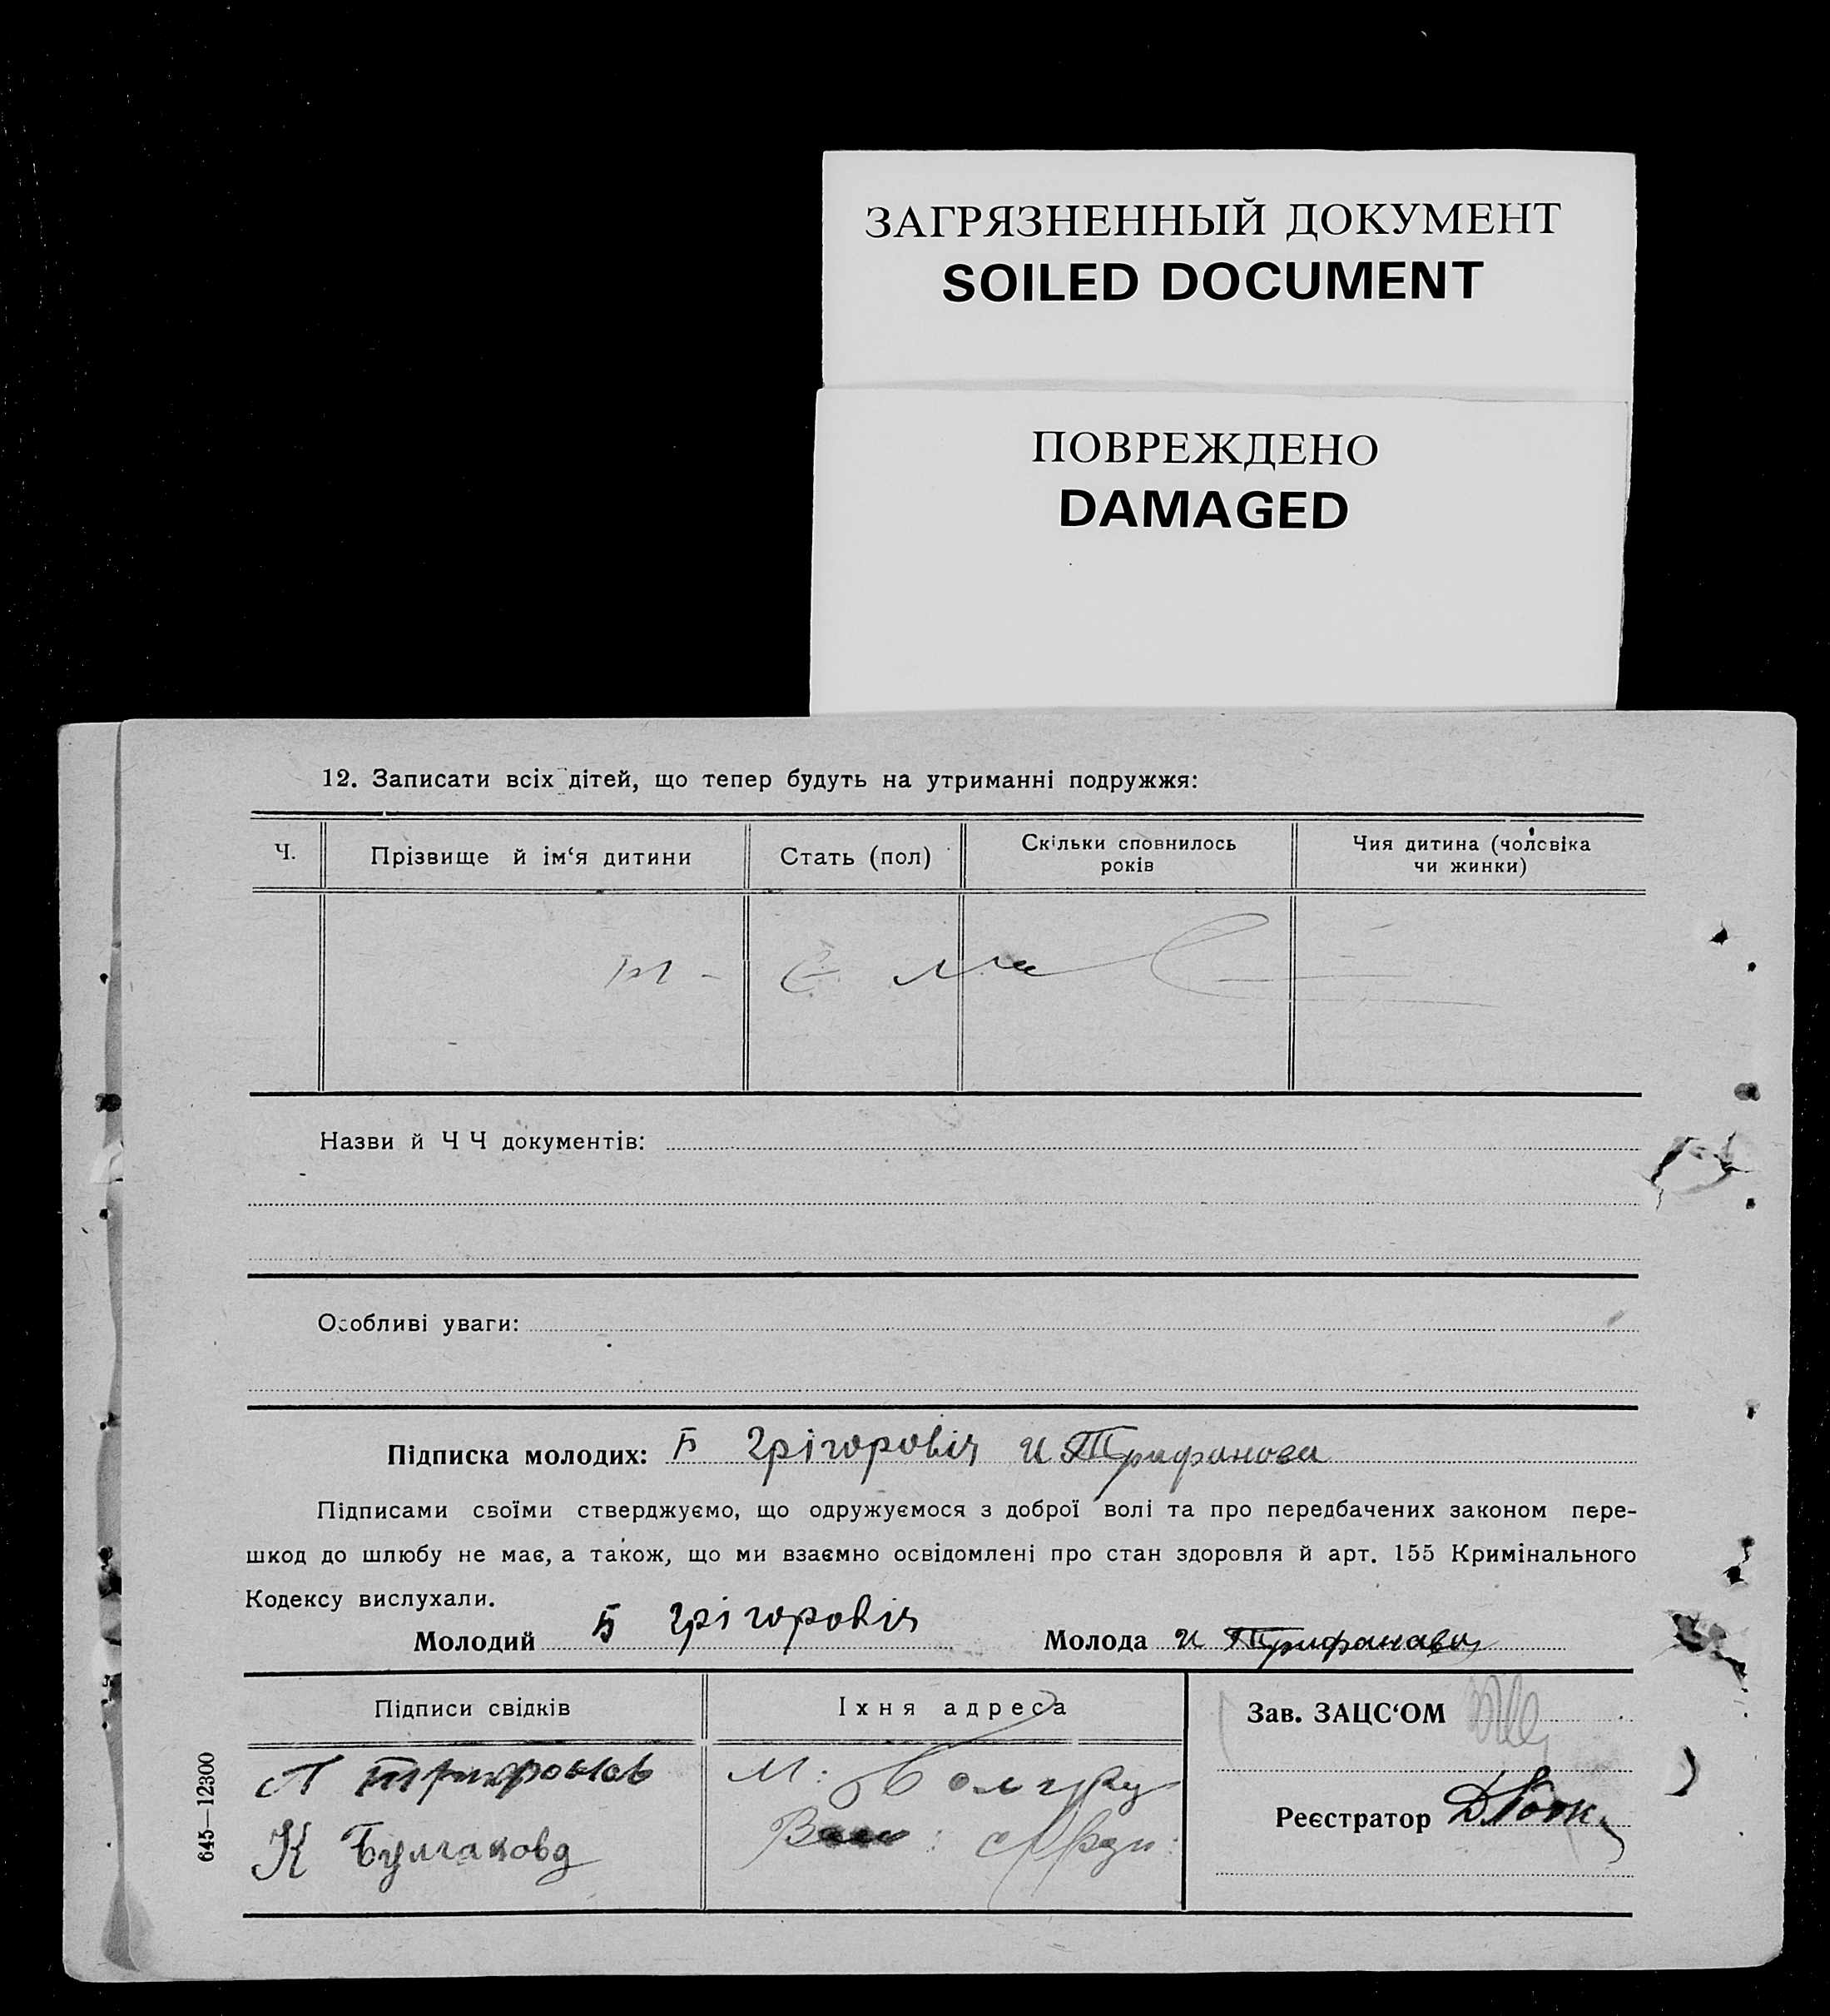 ЗАГРЯЗНЕННЫЙ ДОКУМЕНТ
SOILED DOCUMENT
ПОВРЕЖДЕНО
DAMAGED
12. Записати всіх дітей, що тепер будуть на утриманні подружжя:
Ч. Прізвище й ім‘я дитини Стать (пол) Скільки сповнилось років Чия дитина (чоловіка чи жинки)
Назви й Ч Ч документів:
Особливі уваги:
Підписка молодих: Б Грігоровіч И Трифанова
Підписами своїми стверджуємо, що одружуємося з доброї волі та про передбачених законом пере-
шкод до шлюбу не має, а також, що ми взаємно освідомлені про стан здоровля й арт. 155 Кримінального
Кодексу вислухали.
Молодий Б Грігоровіч Молода И Трифанова
Підписи свідків Їхня адреса Зав. ЗАЦС‘ОМ
Трифонов М:
Реєстратор
К Булгакова
645—12300